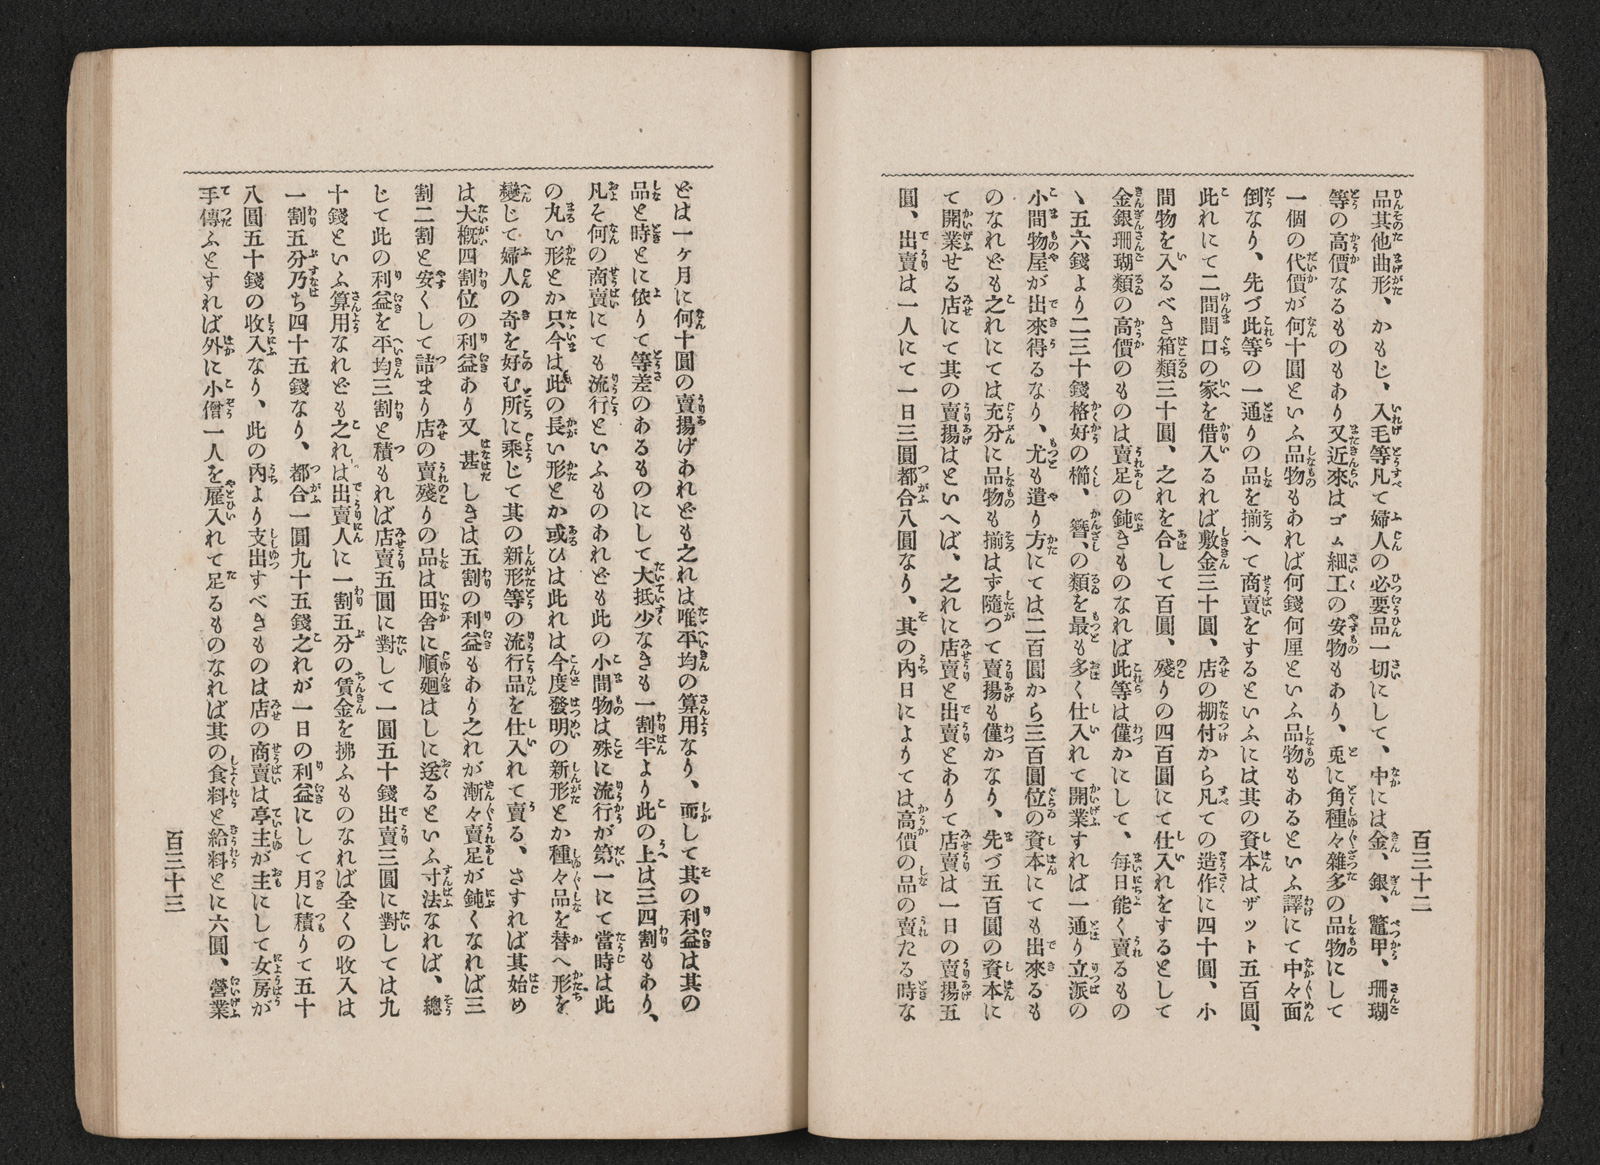 百三十二
品其他曲形、かもじ、入毛等凡て婦人の必要品一切にして、中には金、銀、鼈甲、珊瑚
等の高價なるものもあり又近來はゴム細工の安物もあり、兎に角種々雜多の品物にして
一個の代價が何十圓といふ品物もあれば何錢何厘といふ品物もあるといふ譯にて中々面
倒なり、先づ此等の一通りの品を揃へて商賣をするといふには其の資本はザット五百圓、
此れにて二間間口の家を借入るれば敷金三十圓、店の棚付から凡ての造作に四十圓、小
間物を入るべき箱類三十圓、之れを合して百圓、殘りの四百圓にて仕入れをするとして
金銀珊瑚類の高價のものは賣足の鈍きものなれば此等は僅かにして、每日能く賣るもの
ヽ五六錢より二三十錢格好の櫛、簪、の類を最も多く仕入れて開業すれば一通り立派の
小間物屋が出來得るなり、尤も遣り方にては二百圓から三百圓位の資本にても出來るも
のなれども之れにては充分に品物も揃はず隨つて賣揚も僅かなり、先づ五百圓の資本に
て開業せる店にて其の賣揚はといへば、之れに店賣と出賣とありて店賣は一日の賣揚五
圓、出賣は一人にて一日三圓都合八圓なり、其の內日によりては高價の品の賣たる時な
どは一ヶ月に何十圓の賣揚げあれども之れは唯平均の算用なり、而して其の利益は其の
品と時とに依りて等差のあるものにして大抵少なきも一割半より此の上は三四割もあり、
凡そ何の商賣にても流行といふものあれども此の小間物は殊に流行が第一にて當時は此
の丸い形とか只今は此の長い形とか或ひは此れは今度發明の新形とか種々品を替へ形を
變じて婦人の奇を好む所に乘じて其の新形等の流行品を仕入れて賣る、さすれば其始め
は大槪四割位の利益あり又甚しきは五割の利益もあり之れが漸々賣足が鈍くなれば三
割二割と安くして詰まり店の賣殘りの品は田舍に順廻はしに送るといふ寸法なれば、總
じて此の利益を平均三割と積もれば店賣五圓に對して一圓五十錢出賣三圓に對しては九
十錢といふ算用なれども之れは出賣人に一割五分の賃金を拂ふものなれば全くの收入は
一割五分乃ち四十五錢なり、都合一圓九十五錢之れが一日の利益にして月に積りて五十
八圓五十錢の收入なり、此の內より支出すべきものは店の商賣は亭主が主にして女房が
手傳ふとすれば外に小僧一人を雇入れて足るものなれば其の食料と給料とに六圓、營業
百三十三